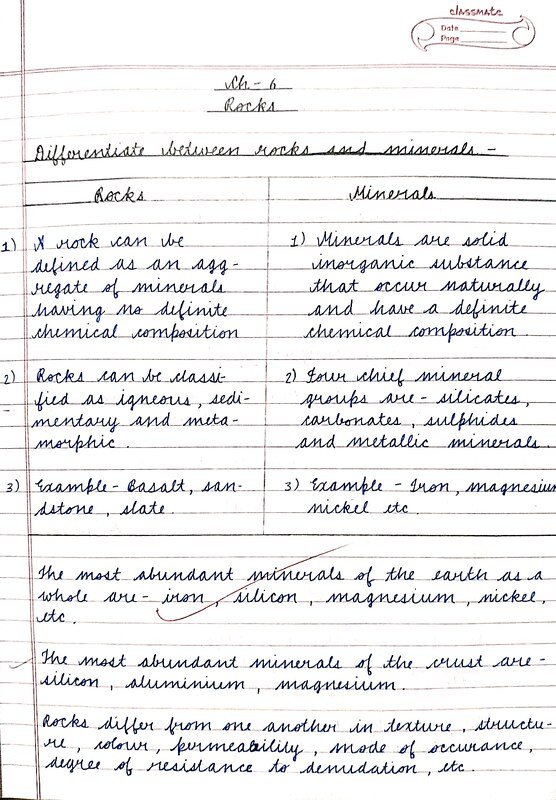 classmate
Date
Page
Ch - 6
Rocks
Differentiate between rocks and minerals -
Rocks
Minerals
1) A rock can be
defined as an agg-
regate of minerals
having no definite
chemical composition
1) Minerals are solid
inorganic substance
that occur naturally
and have a definite
chemical composition.
2) Rocks can be classi-
fied as igneous, sedi-
mentary and meta-
morphic.
2) Four chief mineral
groups are - silicates,
carbonates, sulphides
and metallic minerals.
3) Example - Basalt, san-
dstone, slate.
3) Example - Iron, magnesium
nickel etc.
The most abundant minerals of the earth as a
whole are - iron, silicon, magnesium, nickel,
etc.
The most abundant minerals of the crust are -
silicon, aluminium, magnesium.
Rocks differ from one another in texture, structu-
re, colour, permeability, mode of occurance,
degree of resistance to denudation, etc.